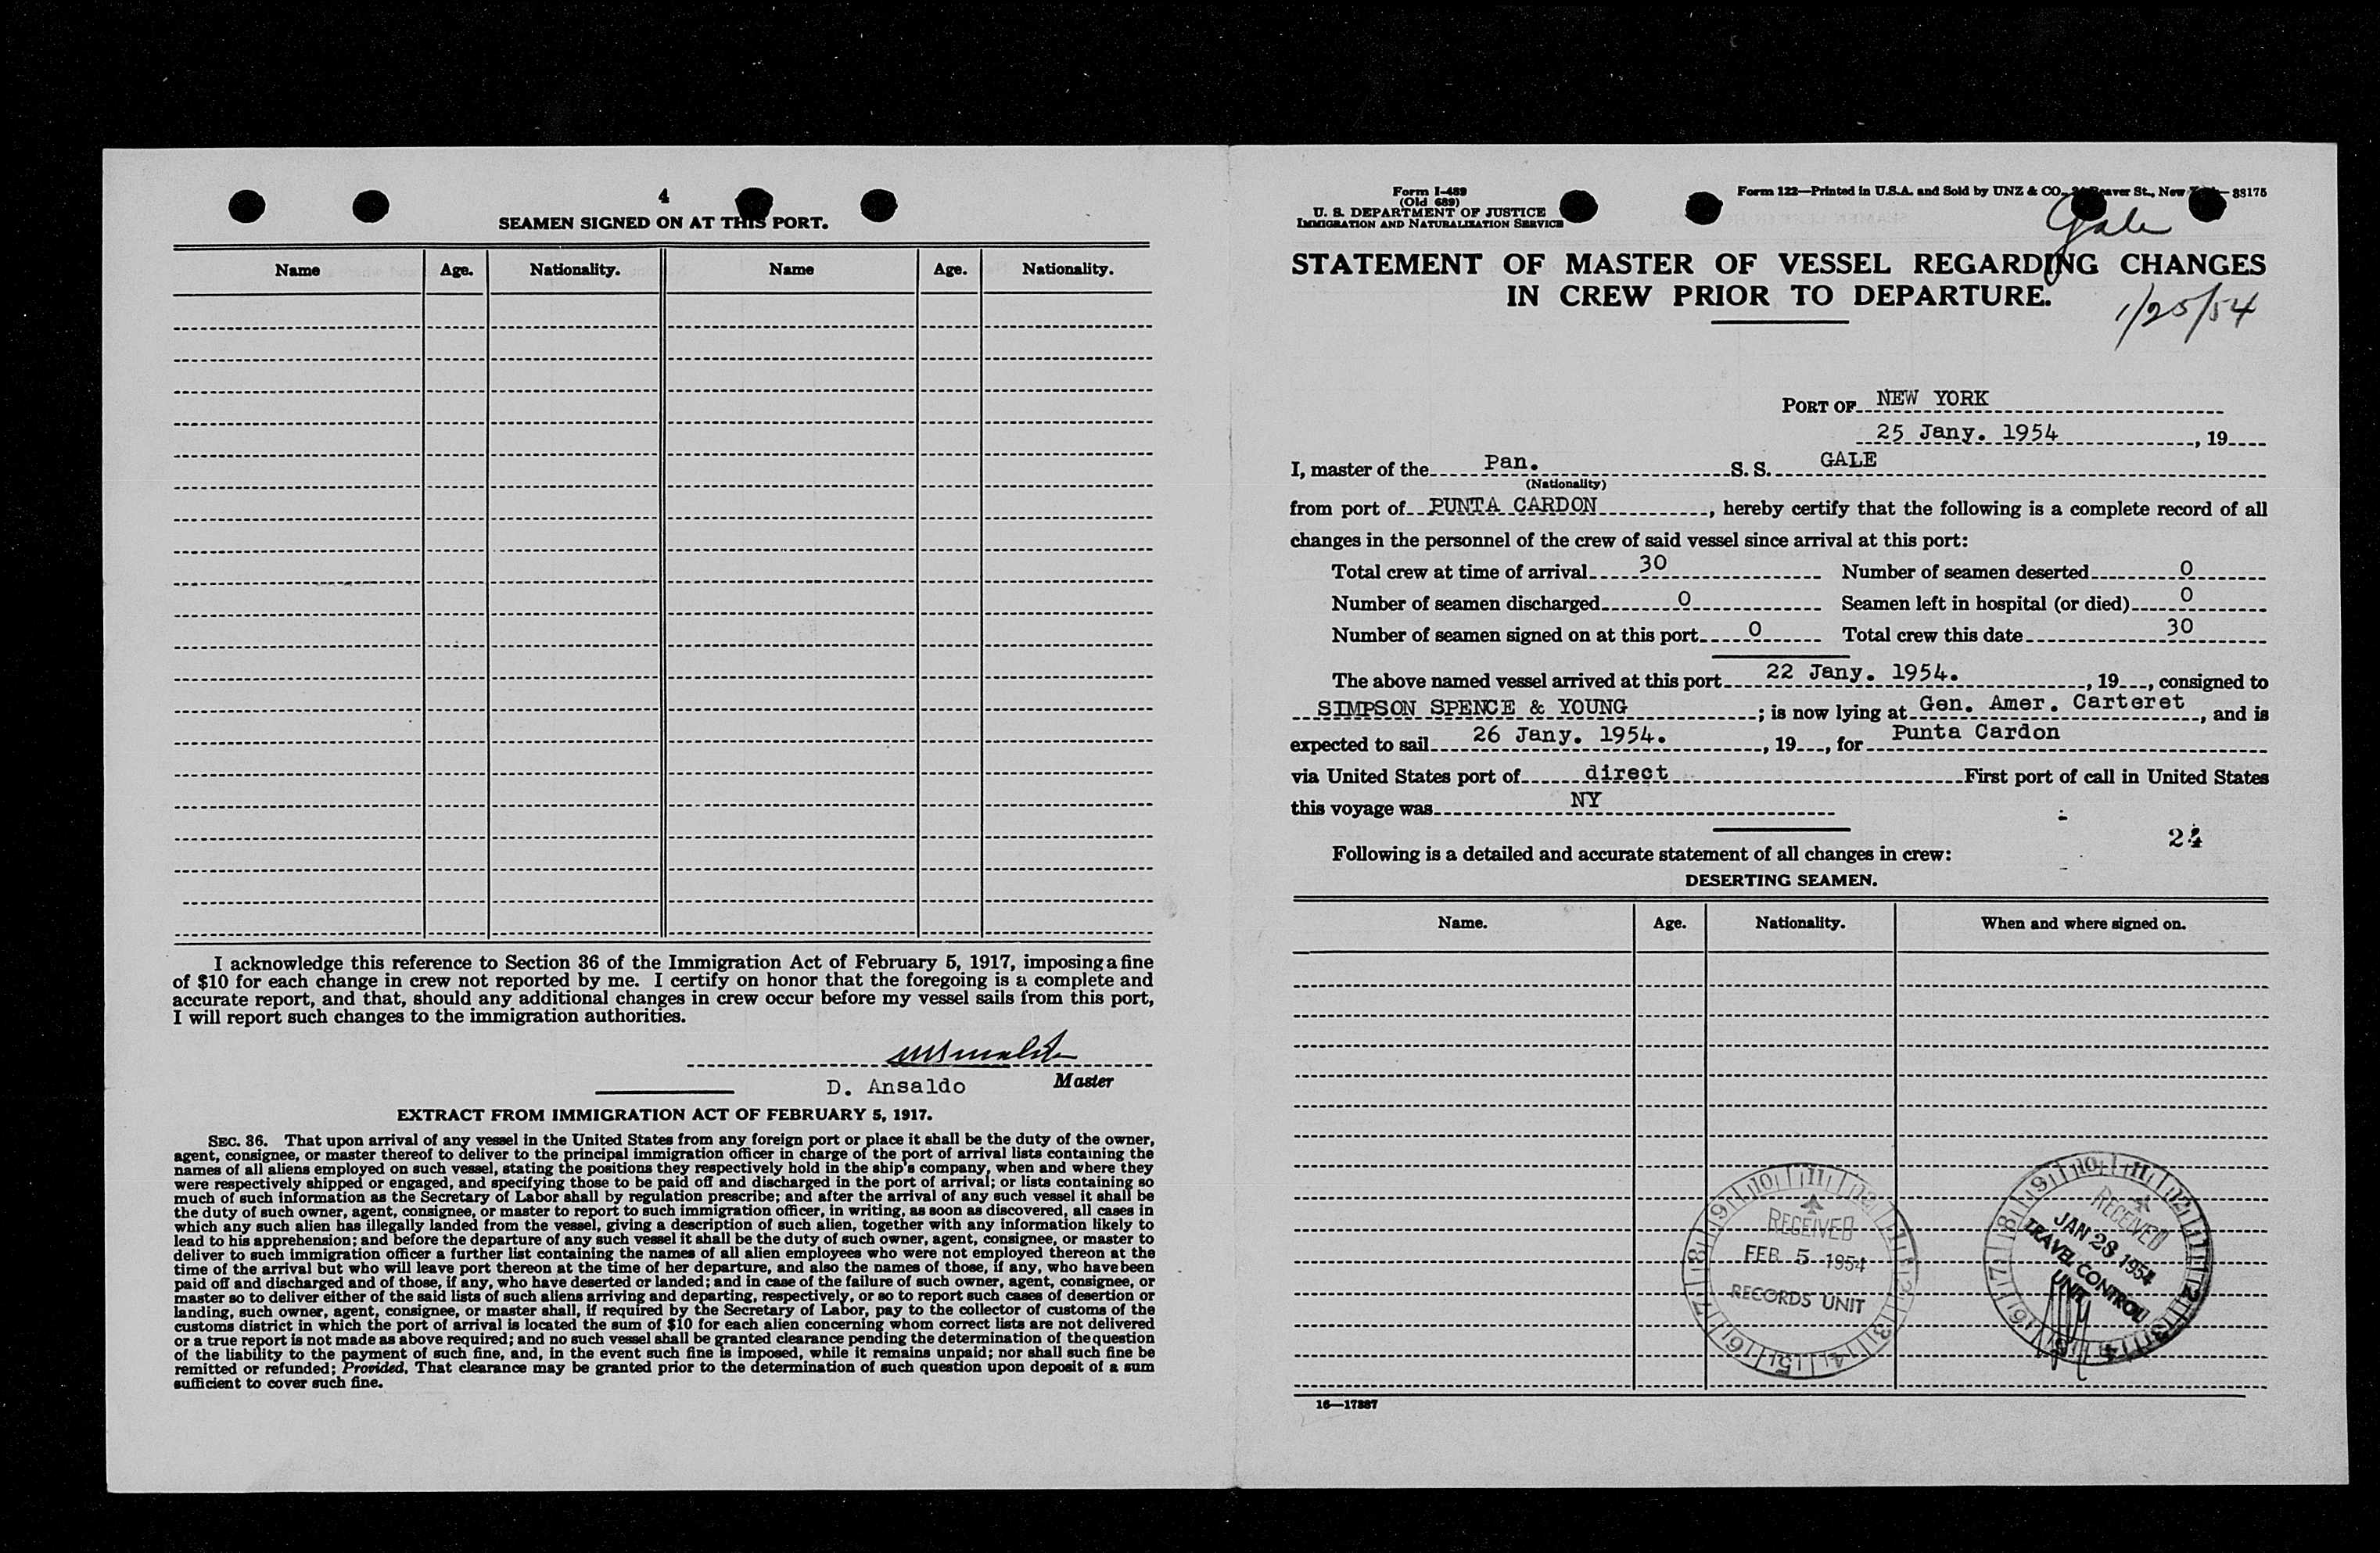 4
SEAMEN SIGNED ON AT THIS PORT.
Name Age. Nationality. Name Age. Nationality.
I acknowledge this reference to Section 36 of the Immigration Act of February 5, 1917, imposing a fine
of $10 for each change in crew not reported by me. I certify on honor that the foregoing is a complete and
accurate report, and that, should any additional changes in crew occur before my vessel sails from this port,
I will report such changes to the immigration authorities.
D. Ansaldo Master
EXTRACT FROM IMMIGRATION ACT OF FEBRUARY 5, 1917.
SEC. 36. That upon arrival of any vessel in the United States from any foreign port or place it shall be the duty of the owner,
agent, consignee, or master thereof to deliver to the principal immigration officer in charge of the port of arrival lists containing the
names of all aliens employed on such vessel, stating the positions they respectively hold in the ship's company, when and where they
were respectively shipped or engaged, and specifying those to be paid off and discharged in the port of arrival; or lists containing so
much of such information as the Secretary of Labor shall by regulation prescribe; and after the arrival of any such vessel it shall be
the duty of such owner, agent, consignee, or master to report to such immigration officer, in writing, as soon as discovered, all cases in
which any such alien has illegally landed from the vessel, giving a description of such alien, together with any information likely to
lead to his apprehension; and before the departure of any such vessel it shall be the duty of such owner, agent, consignee, or master to
deliver to such immigration officer a further list containing the names of all alien employees who were not employed thereon at the
time of the arrival but who will leave port thereon at the time of her departure, and also the names of those, if any, who have been
paid off and discharged and of those, if any, who have deserted or landed; and in case of the failure of such owner, agent, consignee, or
master so to deliver either of the said lists of such aliens arriving and departing, respectively, or so to report such cases of desertion or
landing, such owner, agent, consignee, or master shall, if required by the Secretary of Labor, pay to the collector of customs of the
customs district in which the port of arrival is located the sum of $10 for each alien concerning whom correct lists are not delivered
or a true report is not made as above required; and no such vessel shall be granted clearance pending the determination of the question
of the liability to the payment of such fine, and, in the event such fine is imposed, while it remains unpaid; nor shall such fine be
remitted or refunded; Provided, That clearance may be granted prior to the determination of such question upon deposit of a sum
sufficient to cover such fine.
Form I-489
(Old 689)
U. S. DEPARTMENT OF JUSTICE
IMMIGRATION AND NATURALIZATION SERVICE
Form 122—Printed in U.S.A. and Sold by UNZ & CO., Beaver St., New —38175
Gale
STATEMENT OF MASTER OF VESSEL REGARDING CHANGES
IN CREW PRIOR TO DEPARTURE.
1/25/54
PORT OF NEW YORK
25 Jany. 1954, 19
I, master of the Pan. S. S. GALE
(Nationality)
from port of PUNTA CARDON, hereby certify that the following is a complete record of all
changes in the personnel of the crew of said vessel since arrival at this port:
Total crew at time of arrival 30 Number of seamen deserted 0
Number of seamen discharged 0 Seamen left in hospital (or died) 0
Number of seamen signed on at this port 0 Total crew this date 30
The above named vessel arrived at this port 22 Jany. 1954., 19, consigned to
SIMPSON SPENCE & YOUNG; is now lying at Gen. Amer. Carteret, and is
expected to sail 26 Jany. 1954., 19, for Punta Cardon
via United States port of direct First port of call in United States
this voyage was NY
Following is a detailed and accurate statement of all changes in crew:
DESERTING SEAMEN.
Name. Age. Nationality. When and where signed on.
RECEIVED
FEB 5 1954
RECORDS UNIT
RECEIVED
JAN 28 1954
TRAVEL CONTROL
UNIT
16—17887